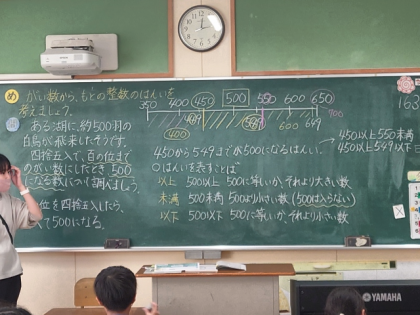 め がい数から、もとの整数のはんいを
考えましょう。
350 400 450 500 550 600 650
449 549 649 700
400 600
163
ある湖に、約500羽の
白鳥が飛来したそうです。
四捨五入して、百の位まで
のがい数にしたとき、500
になる数について調べましょう。
位を四捨五入したら、
て500になる。
450から549までが500になるはんい。
はんいを表すことば
以上 500以上 500に等しいか、それより大きい数
未満 500未満 500より小さい数(500は入らない)
以下 500以下 500に等しいか、それより小さい数
450以上550未満
450以上549以下
YAMAHA